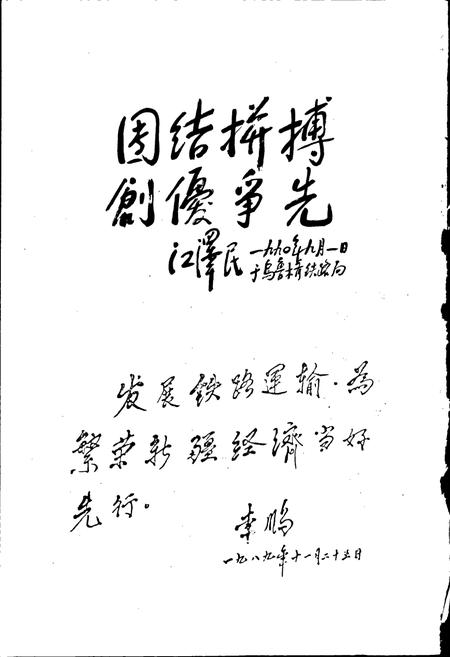 团结拼搏
創優爭先
江澤民 一九九〇年九月一日
于乌鲁木齐铁路局
发展铁路運输,為
繁荣新疆经濟当好
先行。
李鹏
一九八九年十一月二十五日